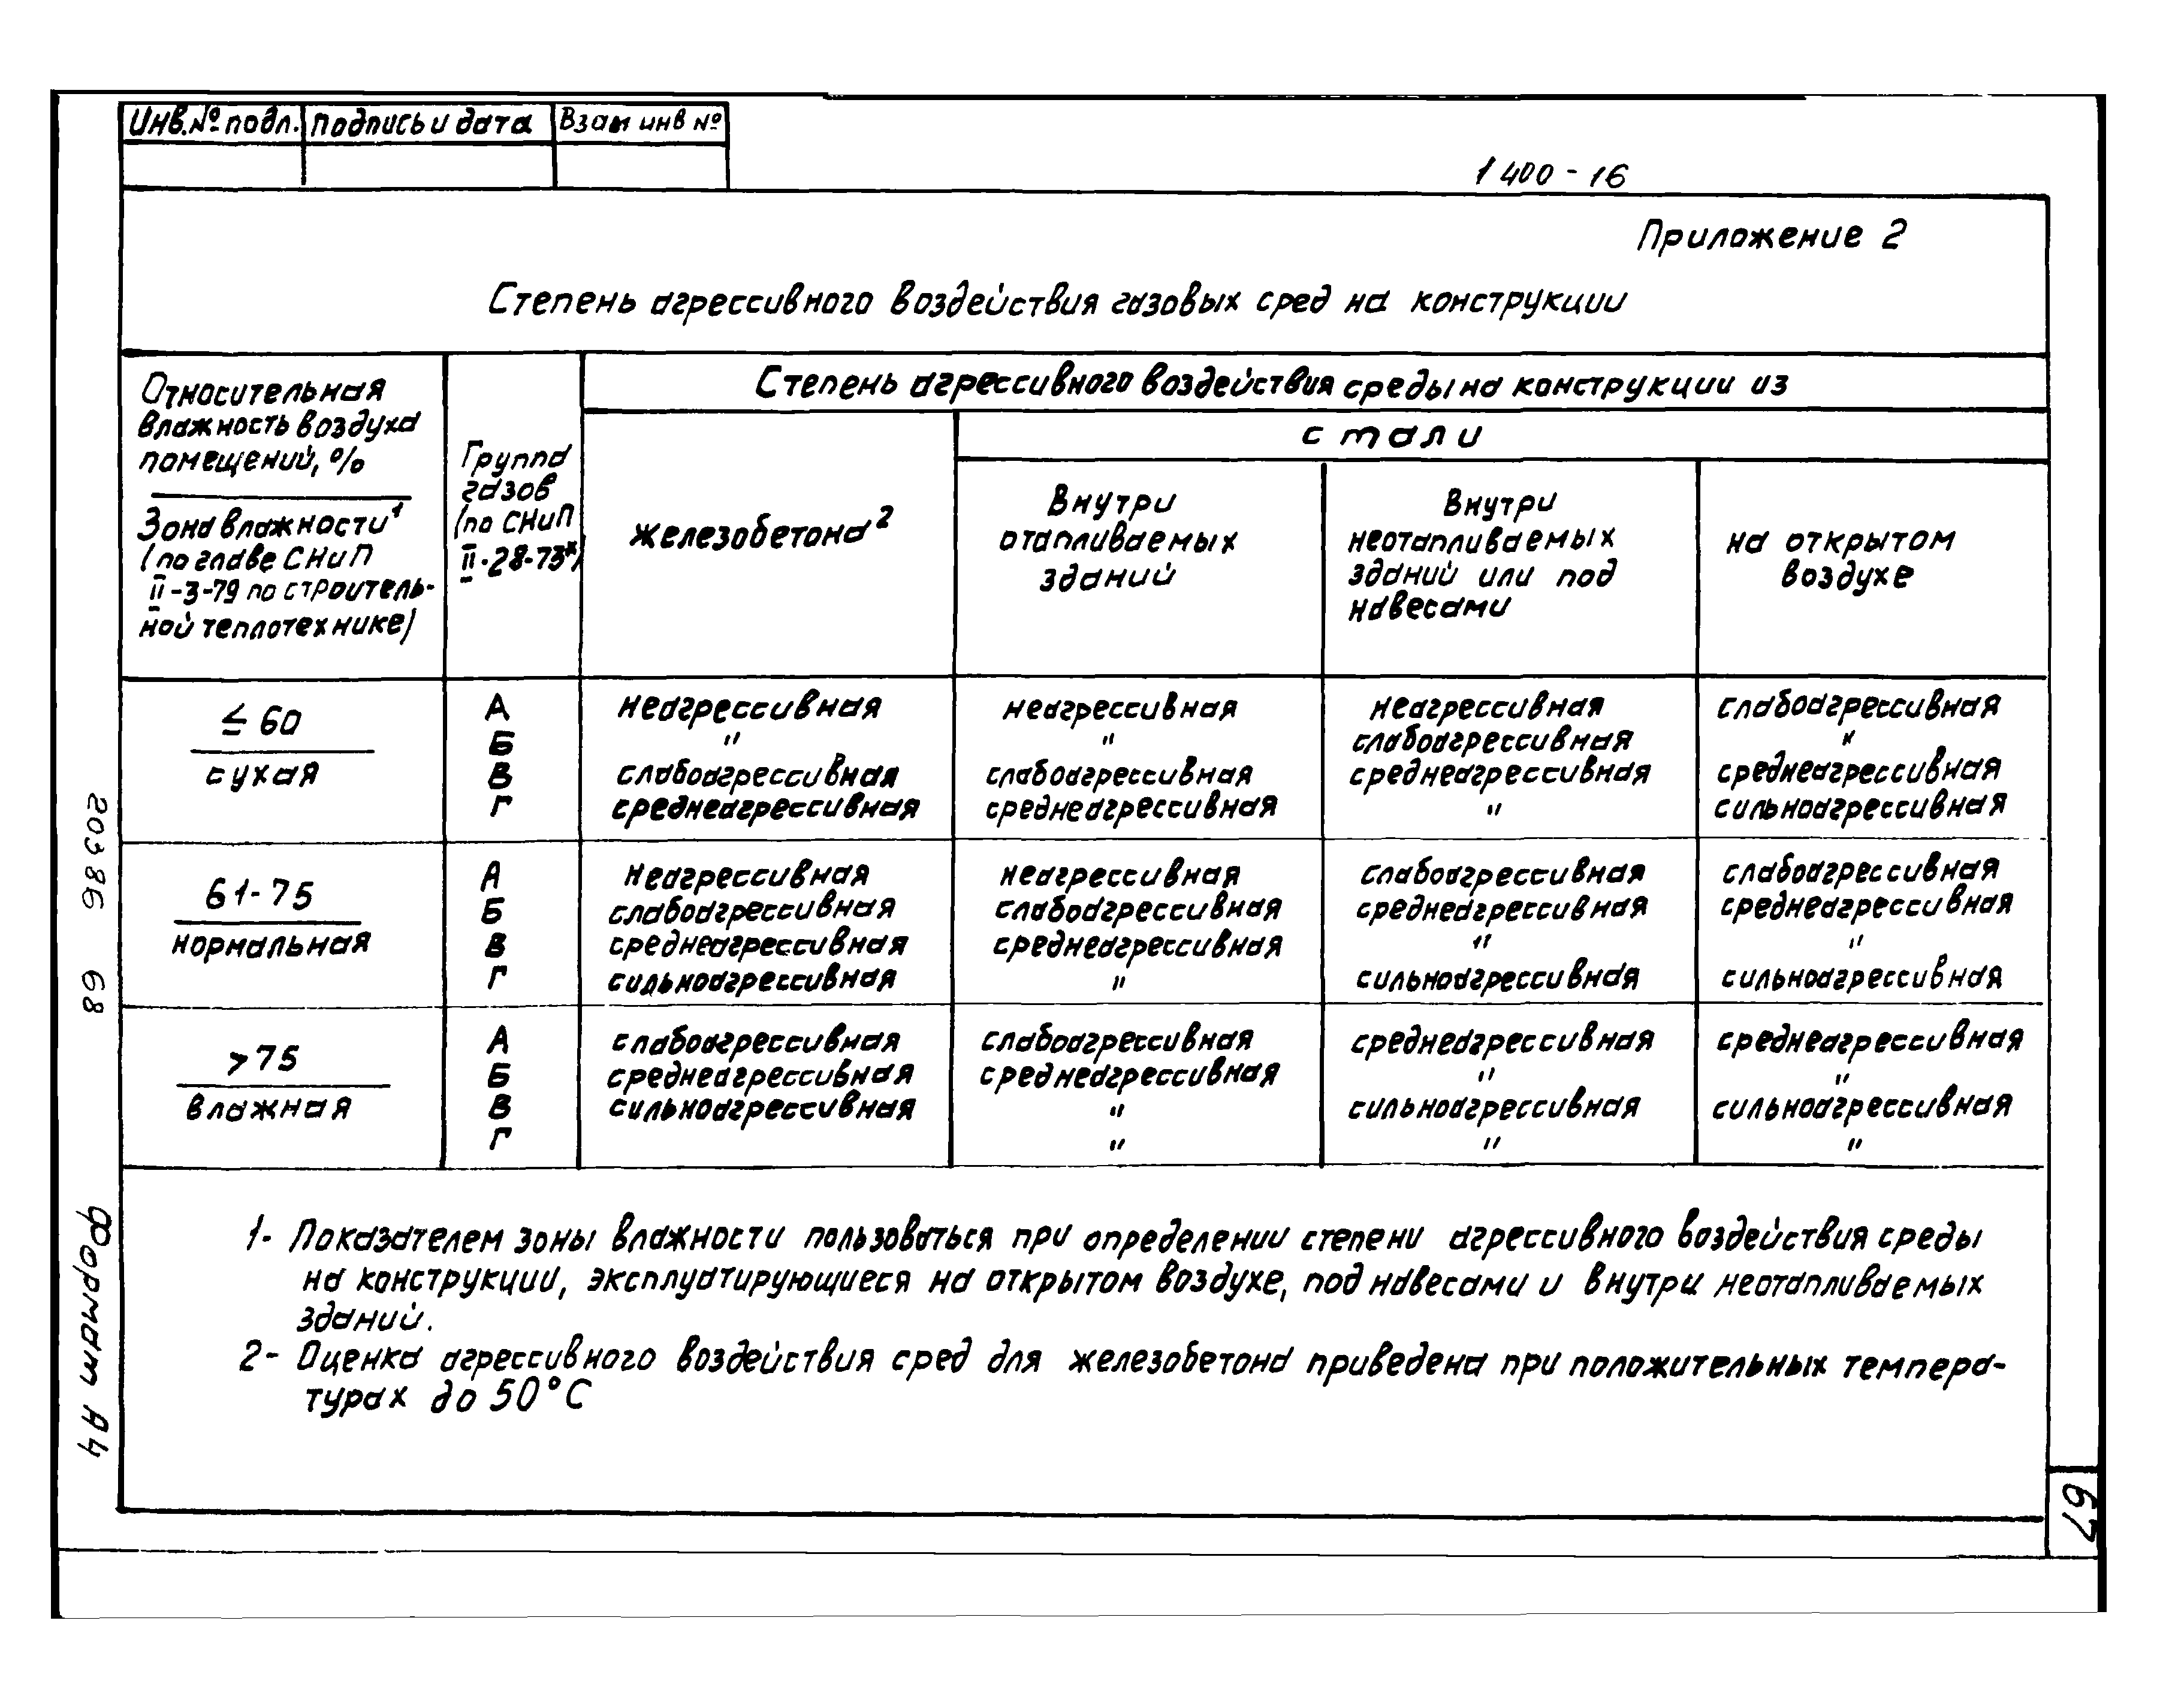 Инв.№ подл. Подпись и дата Взам инв №
1 400 - 16
Приложение 2
Степень агрессивного воздействия газовых сред на конструкции
Относительная
влажность воздуха
помещений, %
Зона влажности¹
(по главе СНиП
II-3-79 по строитель-
ной теплотехнике)
Группа
газов
(по СНиП
II-28-73*)
Степень агрессивного воздействия среды на конструкции из
железобетона²
стали
Внутри
отапливаемых
зданий
Внутри
неотапливаемых
зданий или под
навесами
на открытом
воздухе
≤ 60
сухая
А неагрессивная неагрессивная неагрессивная слабоагрессивная
Б " " слабоагрессивная "
В слабоагрессивная слабоагрессивная среднеагрессивная среднеагрессивная
Г среднеагрессивная среднеагрессивная " сильноагрессивная
61-75
нормальная
А неагрессивная неагрессивная слабоагрессивная слабоагрессивная
Б слабоагрессивная слабоагрессивная среднеагрессивная среднеагрессивная
В среднеагрессивная среднеагрессивная " "
Г сильноагрессивная " сильноагрессивная сильноагрессивная
>75
влажная
А слабоагрессивная слабоагрессивная среднеагрессивная среднеагрессивная
Б среднеагрессивная среднеагрессивная " "
В сильноагрессивная " сильноагрессивная сильноагрессивная
Г " " "
1- Показателем зоны влажности пользоваться при определении степени агрессивного воздействия среды
на конструкции, эксплуатирующиеся на открытом воздухе, под навесами и внутри неотапливаемых
зданий.
2- Оценка агрессивного воздействия сред для железобетона приведена при положительных темпера-
турах до 50°С
20386 68
Формат А4
67